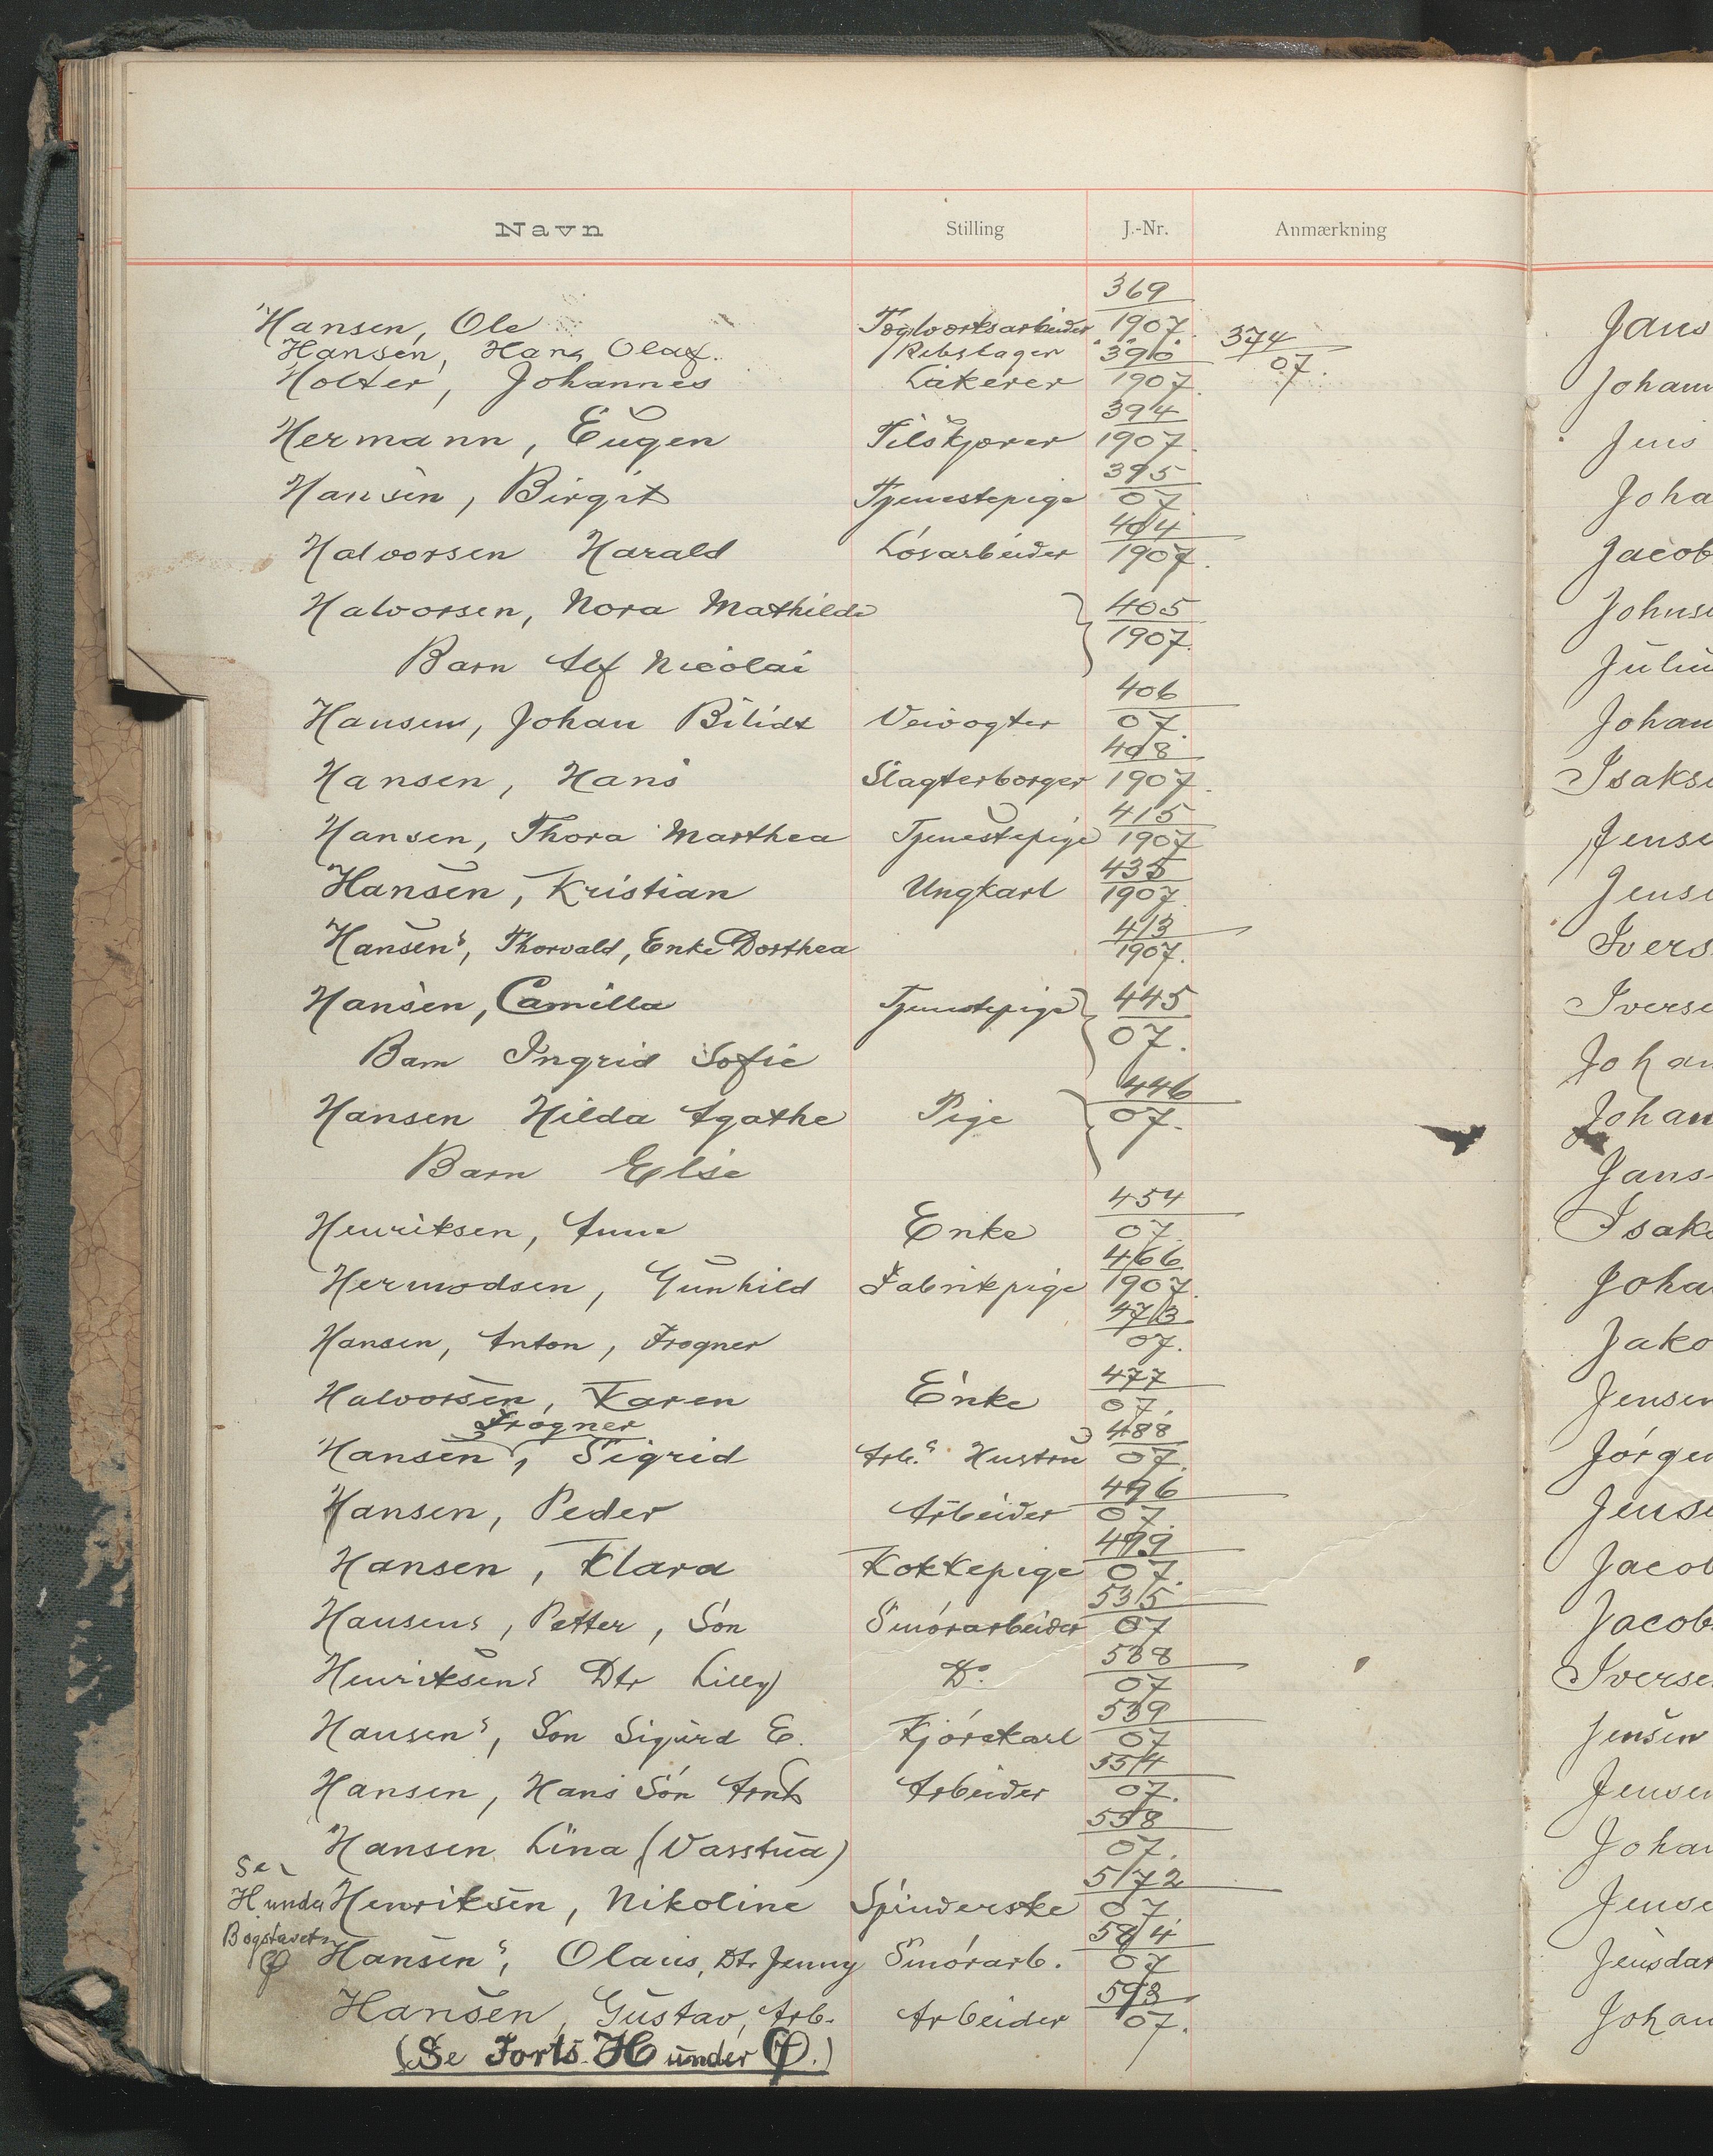 Navn Stilling J.-Nr. Anmærkning
Hansen, Ole Teglværksarbeider 369/1907.
Hansen, Hans Olaf. Rebslager " " 374/07.
Holter, Johannes Lakerer 390/1907.
Hermann, Eugen Tilskjærer 394/1907.
Hansen, Birgit Tjenestepige 395/07
Halvorsen Harald Løsarbeider 404/1907.
Halvorsen, Nora Mathilde } 405/1907.
Barn Alf Nicolai
Hansen, Johan Bilidt Veivogter 406/07.
Hansen, Hans Slagterborger 408/1907.
Hansen, Thora Marthea Tjenestepige 415/1907
Hansen, Kristian Ungkarl 435/1907
Hansens, Thorvald, Enke Dorthea 413/1907.
Hansen, Camilla Tjenestepige } 445/07.
Barn Ingrid Sofie
Hansen Hilda Agathe Pige } 446/07.
Barn Else
Henriksen, Anne Enke 454/07.
Hermodsen, Gunhild Fabrikpige 466/1907.
Hansen, Anton, Frogner 473/07.
Halvorsen, Karen Enke 477/07.
Frogner
Hansen, Sigrid Arb.s Hustru 488/07.
Hansen, Peder Arbeider 496/07.
Hansen, Klara Kokkepige 499/07.
Hansens, Petter, Søn Smørarbeider 535/07
Henriksens Dtr Lilly Do. 538/07
Hansens, Søn Sigurd E. Kjørekarl 539/07
Hansen, Hans Søn Arnt Arbeider 554/07.
Hansen Lina (Vasstua) 558/07.
Se
H under Henriksen, Nikoline Spinderske 572/07
Bogstavet
Q Hansens, Olaus, Dtr Jenny Smørarb. 584/07
Hansen, Gustav, Arb. Arbeider 593/07.
(Se Forts. H under Q.)
Jans
Johann
Jens
Joha
Jacob
Johnse
Juliu
Johan
Isakse
Jense
Jense
Ivers
Iverse
Johan
Johan
Jans
Isake
Joha
Jako
Jensen
Jørgen
Jense
Jacob
Jacob
Iverse
Jensen
Jensen
Johan
Jense
Jensdat
Johan